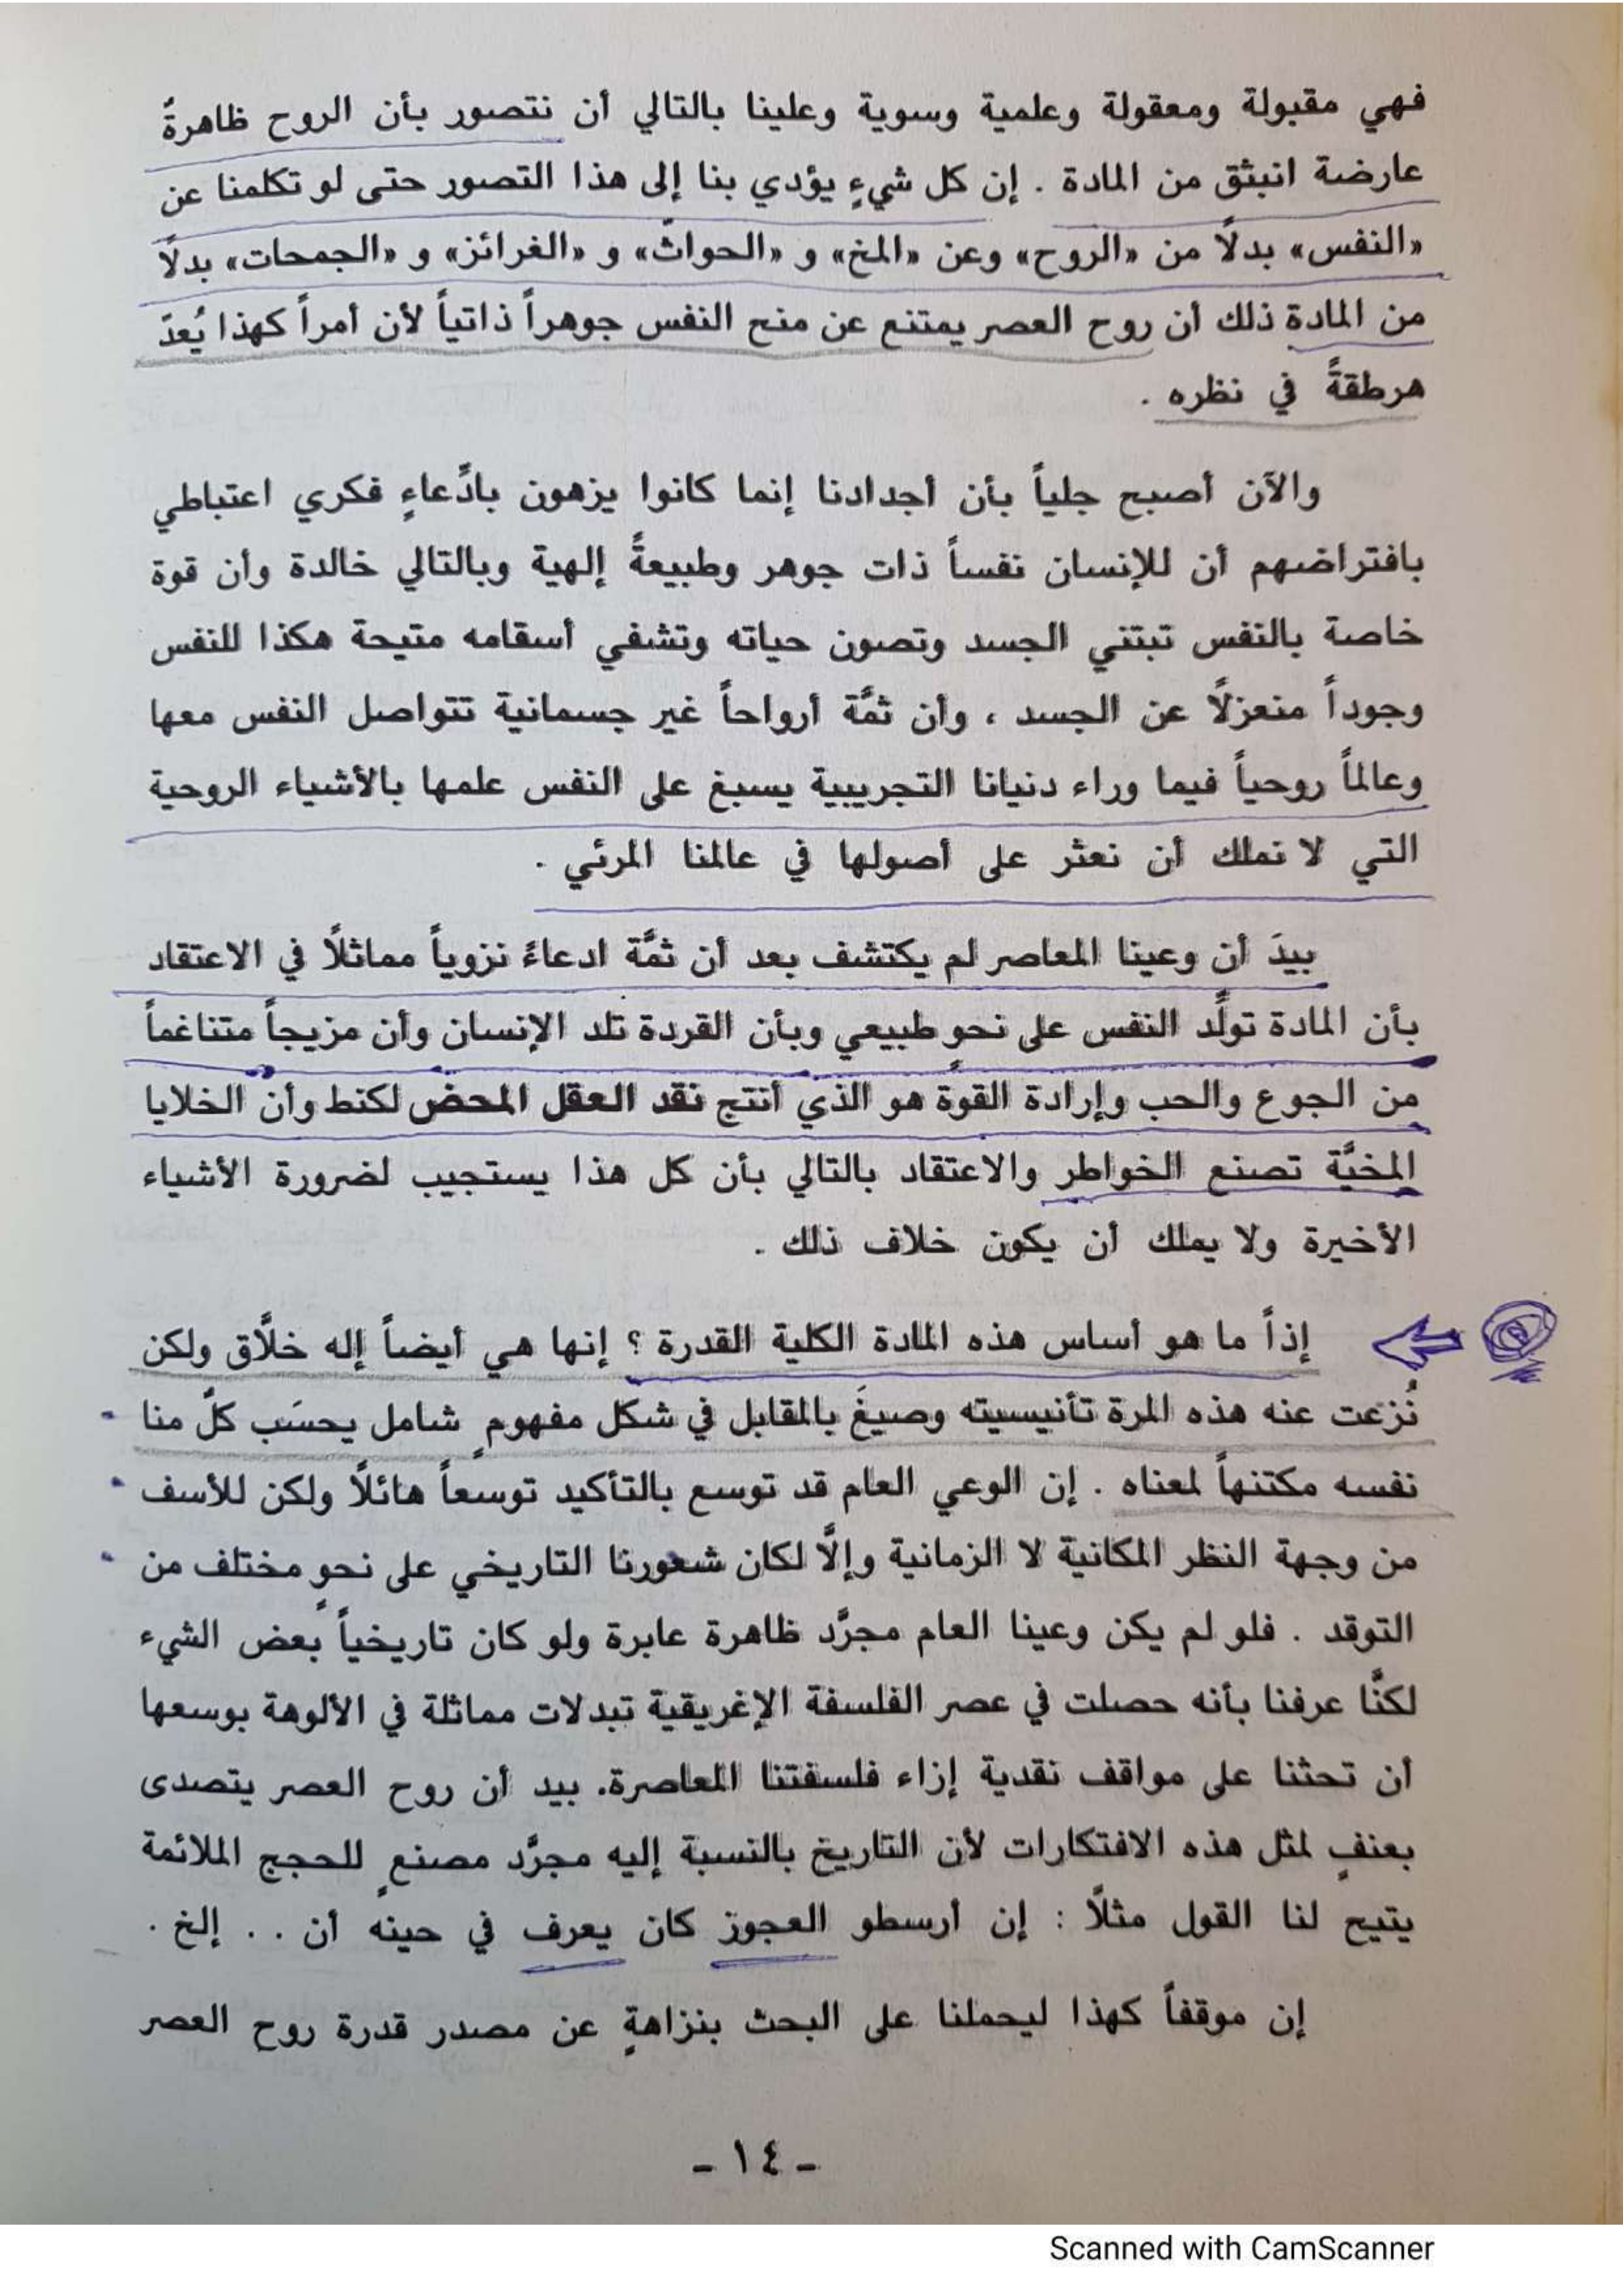 فهي مقبولة ومعقولة وعلمية وسوية وعلينا بالتالي أن نتصور بأن الروح ظاهرةً
عارضة انبثق من المادة . إن كل شيءٍ يؤدي بنا إلى هذا التصور حتى لو تكلمنا عن
«النفس» بدلًا من «الروح» وعن «المخ» و «الحواثّ» و «الغرائز» و «الجمحات» بدلًا
من المادة ذلك أن روح العصر يمتنع عن منح النفس جوهراً ذاتياً لأن أمراً كهذا يُعدّ
هرطقةً في نظره .
والآن أصبح جلياً بأن أجدادنا إنما كانوا يزهون بادِّعاءٍ فكري اعتباطي
بافتراضهم أن للإنسان نفساً ذات جوهر وطبيعةً إلهية وبالتالي خالدة وأن قوة
خاصة بالنفس تبتني الجسد وتصون حياته وتشفي أسقامه متيحة هكذا للنفس
وجوداً منعزلًا عن الجسد ، وأن ثمَّة أرواحاً غير جسمانية تتواصل النفس معها
وعالماً روحياً فيما وراء دنيانا التجريبية يسبغ على النفس علمها بالأشياء الروحية
التي لا نملك أن نعثر على أصولها في عالمنا المرئي .
بيدَ أن وعينا المعاصر لم يكتشف بعد أن ثمَّة ادعاءً نزوياً مماثلًا في الاعتقاد
بأن المادة تولِّد النفس على نحو طبيعي وبأن القردة تلد الإنسان وأن مزيجاً متناغماً
من الجوع والحب وإرادة القوة هو الذي أنتج نقد العقل المحض لكنط وأن الخلايا
المخيَّة تصنع الخواطر والاعتقاد بالتالي بأن كل هذا يستجيب لضرورة الأشياء
الأخيرة ولا يملك أن يكون خلاف ذلك .
إذاً ما هو أساس هذه المادة الكلية القدرة ؟ إنها هي أيضاً إله خلَّاق ولكن
نُزعت عنه هذه المرة تأنيسيته وصيغَ بالمقابل في شكل مفهومٍ شامل يحسَب كلّ منا
نفسه مكتنهاً لمعناه . إن الوعي العام قد توسع بالتأكيد توسعاً هائلًا ولكن للأسف
من وجهة النظر المكانية لا الزمانية وإلَّا لكان شعورنا التاريخي على نحوٍ مختلف من
التوقد . فلو لم يكن وعينا العام مجرَّد ظاهرة عابرة ولو كان تاريخياً بعض الشيء
لكنَّا عرفنا بأنه حصلت في عصر الفلسفة الإغريقية تبدلات مماثلة في الألوهة بوسعها
أن تحثنا على مواقف نقدية إزاء فلسفتنا المعاصرة. بيد أن روح العصر يتصدى
بعنفٍ لمثل هذه الافتكارات لأن التاريخ بالنسبة إليه مجرَّد مصنعٍ للحجج الملائمة
يتيح لنا القول مثلًا : إن أرسطو العجوز كان يعرف في حينه أن . . إلخ .
إن موقفاً كهذا ليحملنا على البحث بنزاهةٍ عن مصدر قدرة روح العصر
ـ ١٤ ـ
Scanned with CamScanner